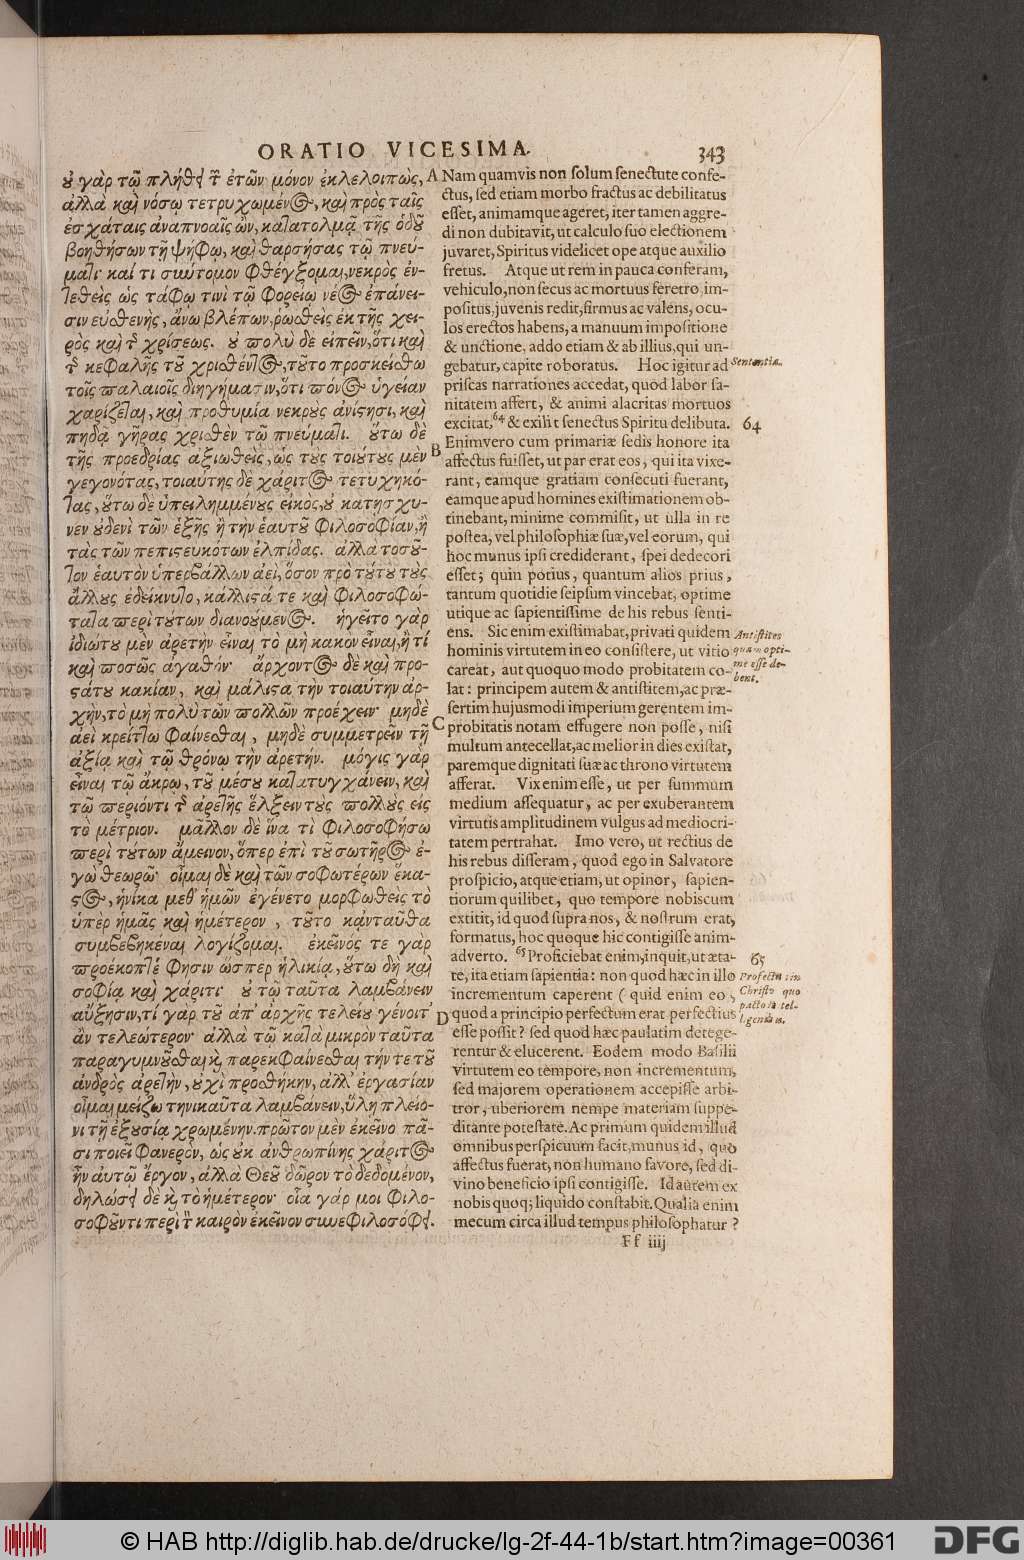 ORATIO VICESIMA.
343
οὐ γὰρ τῷ πλήθει τῶν ἐτῶν μόνον ἐκλελοιπὼς,
ἀλλὰ καὶ νόσῳ τετρυχωμένος, καὶ πρὸς ταῖς
ἐσχάταις ἀναπνοαῖς ὢν, κατατολμᾷ τῆς ὁδοῦ
βοηθήσων τῇ ψήφῳ, καὶ θαρσήσας τῷ πνεύ-
ματι· καί τι σύντομον φθέγξομαι, νεκρὸς ἐν-
τεθεὶς ὡς τάφῳ τινὶ τῷ φορείῳ νέος ἐπάνει-
σιν εὐσθενὴς, ἄνω βλέπων, ῥωσθεὶς ἐκ τῆς χει-
ρὸς καὶ τῆς χρίσεως. οὐ πολὺ δὲ εἰπεῖν, ὅτι καὶ
τῆς κεφαλῆς τοῦ χρισθέντος, τοῦτο προσκείσθω
τοῖς παλαιοῖς διηγήμασιν, ὅτι πόνος ὑγείαν
χαρίζεται, καὶ προθυμία νεκροὺς ἀνίστησι, καὶ
πηδᾷ γῆρας χρισθὲν τῷ πνεύματι. οὕτω δὲ
τῆς προεδρίας ἀξιωθεὶς, ὡς τοὺς τοιούτους μὲν
γεγονότας, τοιαύτης δὲ χάριτος τετυχηκό-
τας, οὕτω δὲ ὑπειλημμένους εἰκὸς, οὐ κατῃσχυ-
νεν οὐδενὶ τῶν ἑξῆς ἢ τὴν ἑαυτοῦ φιλοσοφίαν, ἢ
τὰς τῶν πεπιστευκότων ἐλπίδας. ἀλλὰ τοσοῦ-
τον ἑαυτὸν ὑπερβάλλων ἀεὶ, ὅσον πρὸ τούτου τοὺς
ἄλλους ἐδείκνυτο, κάλλιστά τε καὶ φιλοσοφώ-
τατα περὶ τούτων διανοούμενος. ἡγεῖτο γὰρ
ἰδιώτου μὲν ἀρετὴν εἶναι τὸ μὴ κακὸν εἶναι, ἢ τί
καὶ ποσῶς ἀγαθόν· ἄρχοντος δὲ καὶ προ-
στάτου κακίαν, καὶ μάλιστα τὴν τοιαύτην ἀρ-
χὴν, τὸ μὴ πολὺ τῶν πολλῶν προέχειν· μηδὲ
ἀεὶ κρείττω φαίνεσθαι, μηδὲ συμμετρεῖν τῇ
ἀξίᾳ καὶ τῷ θρόνῳ τὴν ἀρετήν. μόγις γὰρ
εἶναι τῷ ἄκρῳ, τοῦ μέσου κατατυγχάνειν, καὶ
τῷ περιόντι τῆς ἀρετῆς ἕλξειν τοὺς πολλοὺς εἰς
τὸ μέτριον. μᾶλλον δὲ ἵνα τὶ φιλοσοφήσω
περὶ τούτων ἄμεινον, ὅπερ ἐπὶ τοῦ σωτῆρος ἐ-
γὼ θεωρῶ· οἶμαι δὲ καὶ τῶν σοφωτέρων ἕκα-
στος, ἡνίκα μεθ' ἡμῶν ἐγένετο μορφωθεὶς τὸ
ὑπὲρ ἡμᾶς καὶ ἡμέτερον, τοῦτο κἀνταῦθα
συμβεβηκέναι λογίζομαι. ἐκεῖνός τε γὰρ
προέκοπτέ φησιν ὥσπερ ἡλικίᾳ, οὕτω δὴ καὶ
σοφίᾳ καὶ χάριτι· οὐ τῷ ταῦτα λαμβάνειν
αὔξησιν, τί γὰρ τοῦ ἀπ' ἀρχῆς τελείου γένοιτ'
ἂν τελεώτερον· ἀλλὰ τῷ κατὰ μικρὸν ταῦτα
παραγυμνοῦσθαι καὶ παρεκφαίνεσθαι· τήν τε τοῦ
ἀνδρὸς ἀρετὴν, οὐχὶ προσθήκην, ἀλλ' ἐργασίαν
οἶμαι μείζω τηνικαῦτα λαμβάνειν, ὕλη πλείο-
νι τῇ ἐξουσίᾳ χρωμένην. πρῶτον μὲν ἐκεῖνο πᾶ-
σι ποιεῖ φανερὸν, ὡς οὐκ ἀνθρωπίνης χάριτος
ἦν αὐτῷ ἔργον, ἀλλὰ Θεοῦ δῶρον τὸ δεδομένον,
δηλώσει δὲ καὶ τὸ ἡμέτερον· οἷα γάρ μοι φιλο-
σοφοῦντι περὶ τὸν καιρὸν ἐκεῖνον συνεφιλοσόφει.
A
B
C
D
Nam quamvis non solum senectute confe-
ctus, sed etiam morbo fractus ac debilitatus
esset, animamque ageret, iter tamen aggre-
di non dubitavit, ut calculo suo electionem
juvaret, Spiritus videlicet ope atque auxilio
fretus. Atque ut rem in pauca conferam,
vehiculo, non secus ac mortuus feretro im-
positus, juvenis redit, firmus ac valens, ocu-
los erectos habens, a manuum impositione
& unctione, addo etiam & ab illius, qui un-
gebatur, capite roboratus. Hoc igitur ad
priscas narrationes accedat, quod labor sa-
nitatem affert, & animi alacritas mortuos
excitat, 64 & exilit senectus Spiritu delibuta.
Enimvero cum primariæ sedis honore ita
affectus fuisset, ut par erat eos, qui ita vixe-
rant, eamque gratiam consecuti fuerant,
eamque apud homines existimationem ob-
tinebant, minime commisit, ut ulla in re
postea, vel philosophiæ suæ, vel eorum, qui
hoc munus ipsi crediderant, spei dedecori
esset; quin potius, quantum alios prius,
tantum quotidie seipsum vincebat, optime
utique ac sapientissime de his rebus senti-
ens. Sic enim existimabat, privati quidem
hominis virtutem in eo consistere, ut vitio
careat, aut quoquo modo probitatem co-
lat: principem autem & antistitem, ac præ-
sertim hujusmodi imperium gerentem im-
probitatis notam effugere non posse, nisi
multum antecellat, ac melior in dies existat,
paremque dignitati suæ ac throno virtutem
afferat. Vix enim esse, ut per summum
medium assequatur, ac per exuberantem
virtutis amplitudinem vulgus ad mediocri-
tatem pertrahat. Imo vero, ut rectius de
his rebus disseram, quod ego in Salvatore
prospicio, atque etiam, ut opinor, sapien-
tiorum quilibet, quo tempore nobiscum
extitit, id quod supra nos, & nostrum erat,
formatus, hoc quoque hic contigisse anim-
adverto. 65 Proficiebat enim, inquit, ut æta-
te, ita etiam sapientia: non quod hæc in illo
incrementum caperent (quid enim eo,
quod a principio perfectum erat perfectius
esse possit? sed quod hæc paulatim detege-
rentur & elucerent. Eodem modo Basilii
virtutem eo tempore, non incrementum,
sed majorem operationem accepisse arbi-
tror, uberiorem nempe materiam suppe-
ditante potestate. Ac primum quidem illud
omnibus perspicuum facit, munus id, quo
affectus fuerat, non humano favore, sed di-
vino beneficio ipsi contigisse. Id autem ex
nobis quoq; liquido constabit. Qualia enim
mecum circa illud tempus philosophatur?
Ff iiij
Sententia.
64
Antistites
quam opti-
me esse de-
bent.
65
Profectu in
Christo quo
pacto in tel-
ligendus.
© HAB http://diglib.hab.de/drucke/lg-2f-44-1b/start.htm?image=00361
DFG